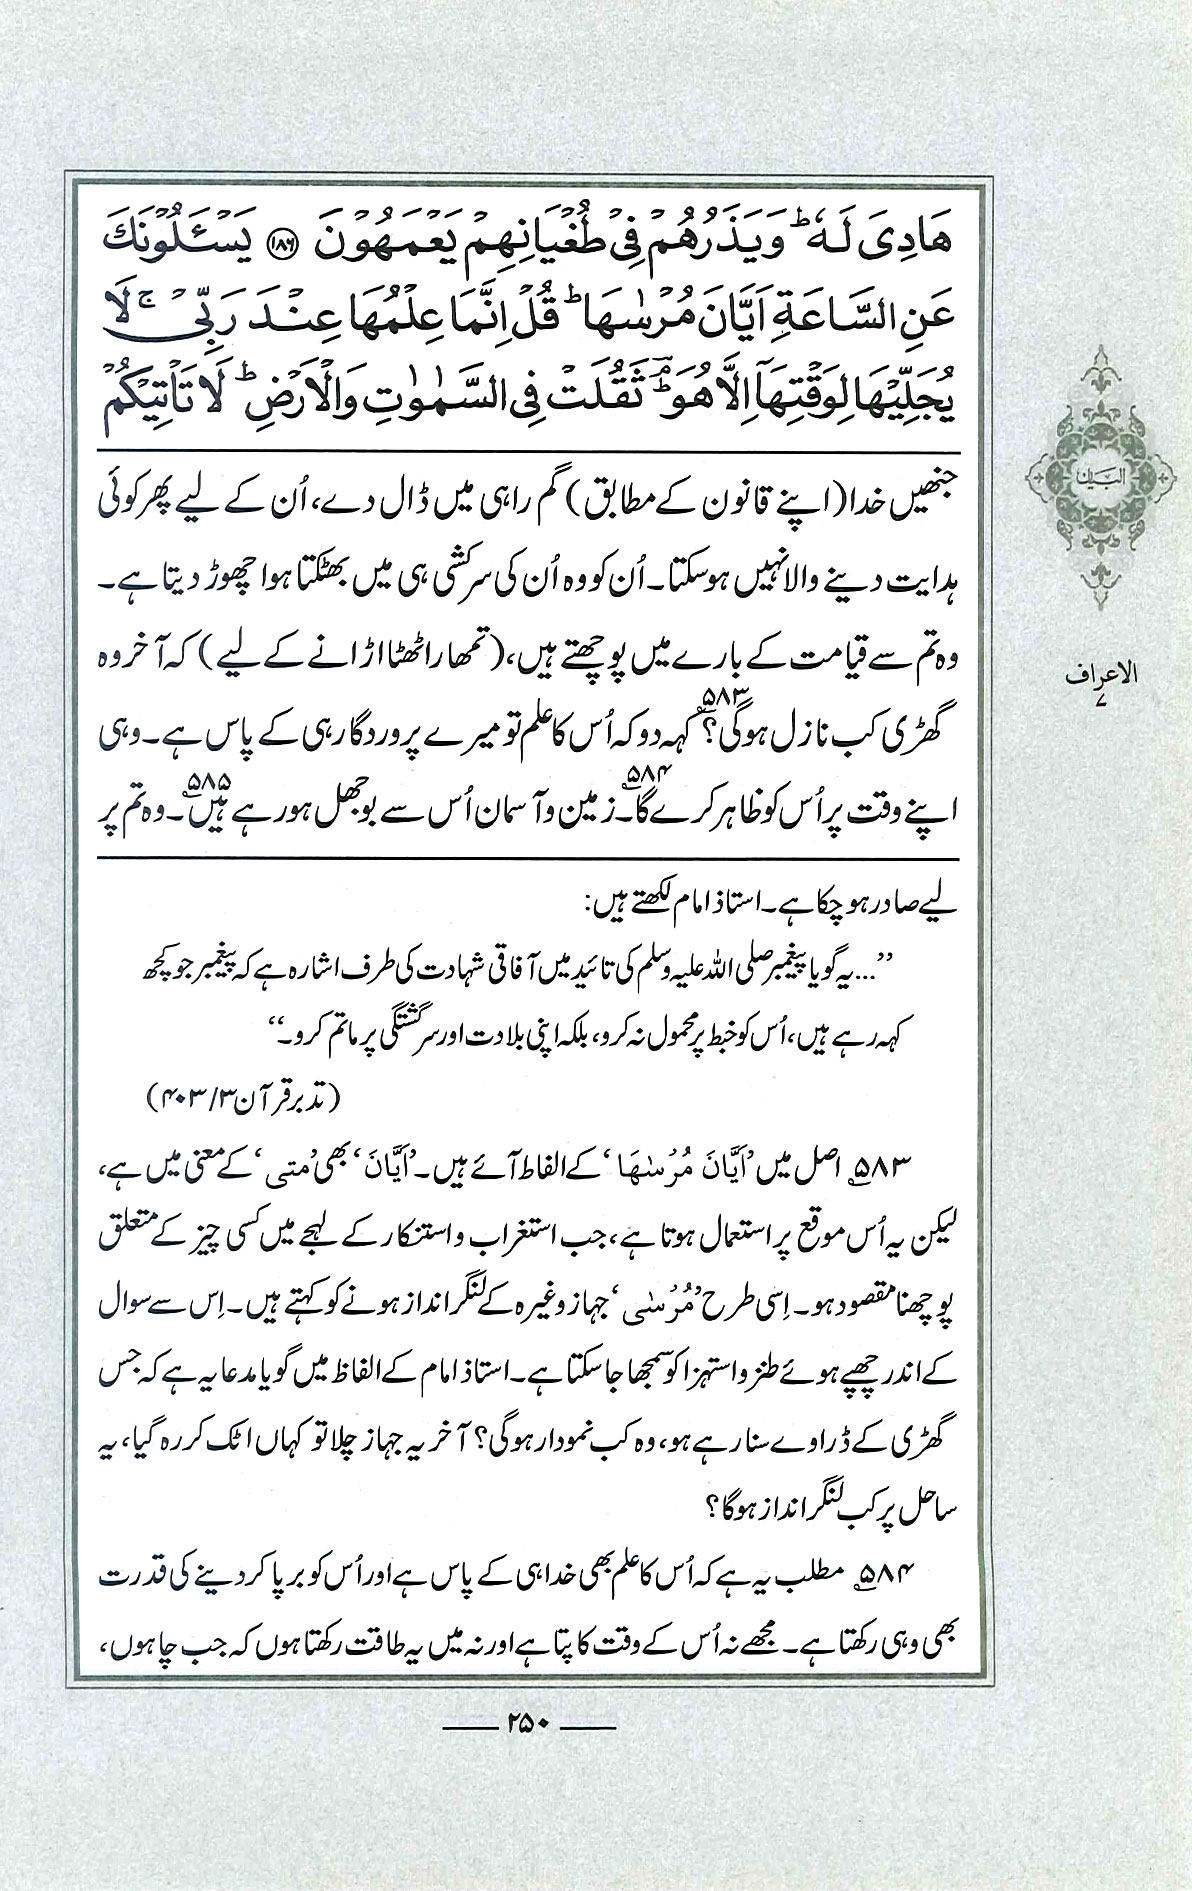 هَادِیَ لَهٗ ؕ وَیَذَرُهُمْ فِیْ طُغْیَانِهِمْ یَعْمَهُوْنَ ﴿۱۸۶﴾ یَسْـَٔلُوْنَكَ
عَنِ السَّاعَةِ اَیَّانَ مُرْسٰىهَا ؕ قُلْ اِنَّمَا عِلْمُهَا عِنْدَ رَبِّیْ ۚ لَا
یُجَلِّیْهَا لِوَقْتِهَاۤ اِلَّا هُوَ ؔؕ ثَقُلَتْ فِی السَّمٰوٰتِ وَالْاَرْضِ ؕ لَا تَاْتِیْكُمْ
جنھیں خدا (اپنے قانون کے مطابق) گم راہی میں ڈال دے، اُن کے لیے پھر کوئی
ہدایت دینے والا نہیں ہو سکتا۔ اُن کو وہ اُن کی سرکشی ہی میں بھٹکتا ہوا چھوڑ دیتا ہے۔
وہ تم سے قیامت کے بارے میں پوچھتے ہیں، (تمھارا ٹھٹا اڑانے کے لیے) کہ آخر وہ
گھڑی کب نازل ہو گی؟ ۵۸۳ کہہ دو کہ اُس کا علم تو میرے پروردگار ہی کے پاس ہے۔ وہی
اپنے وقت پر اُس کو ظاہر کرے گا۔ ۵۸۴ زمین و آسمان اُس سے بوجھل ہو رہے ہیں۔ ۵۸۵ وہ تم پر
لیے صادر ہو چکا ہے۔ استاذ امام لکھتے ہیں:
”...یہ گویا پیغمبر صلی اللہ علیہ وسلم کی تائید میں آفاقی شہادت کی طرف اشارہ ہے کہ پیغمبر جو کچھ
کہہ رہے ہیں، اُس کو خبط پر محمول نہ کرو، بلکہ اپنی بلادت اور سرگشتگی پر ماتم کرو۔“
(تدبر قرآن ۳/ ۴۰۳)
۵۸۳ اصل میں ’اَیَّانَ مُرْسٰىهَا‘ کے الفاظ آئے ہیں۔ ’اَیَّانَ‘ بھی ’متی‘ کے معنی میں ہے،
لیکن یہ اُس موقع پر استعمال ہوتا ہے، جب استغراب و استنکار کے لہجے میں کسی چیز کے متعلق
پوچھنا مقصود ہو۔ اِسی طرح ’مُرْسٰی‘ جہاز وغیرہ کے لنگر انداز ہونے کو کہتے ہیں۔ اِس سے سوال
کے اندر چھپے ہوئے طنز و استہزا کو سمجھا جا سکتا ہے۔ استاذ امام کے الفاظ میں گویا مدعا یہ ہے کہ جس
گھڑی کے ڈراوے سنا رہے ہو، وہ کب نمودار ہو گی؟ آخر یہ جہاز چلا تو کہاں اٹک کر رہ گیا، یہ
ساحل پر کب لنگر انداز ہو گا؟
۵۸۴ مطلب یہ ہے کہ اُس کا علم بھی خدا ہی کے پاس ہے اور اُس کو برپا کر دینے کی قدرت
بھی وہی رکھتا ہے۔ مجھے نہ اُس کے وقت کا پتا ہے اور نہ میں یہ طاقت رکھتا ہوں کہ جب چاہوں،
البیان
الاعراف
۷
۲۵۰